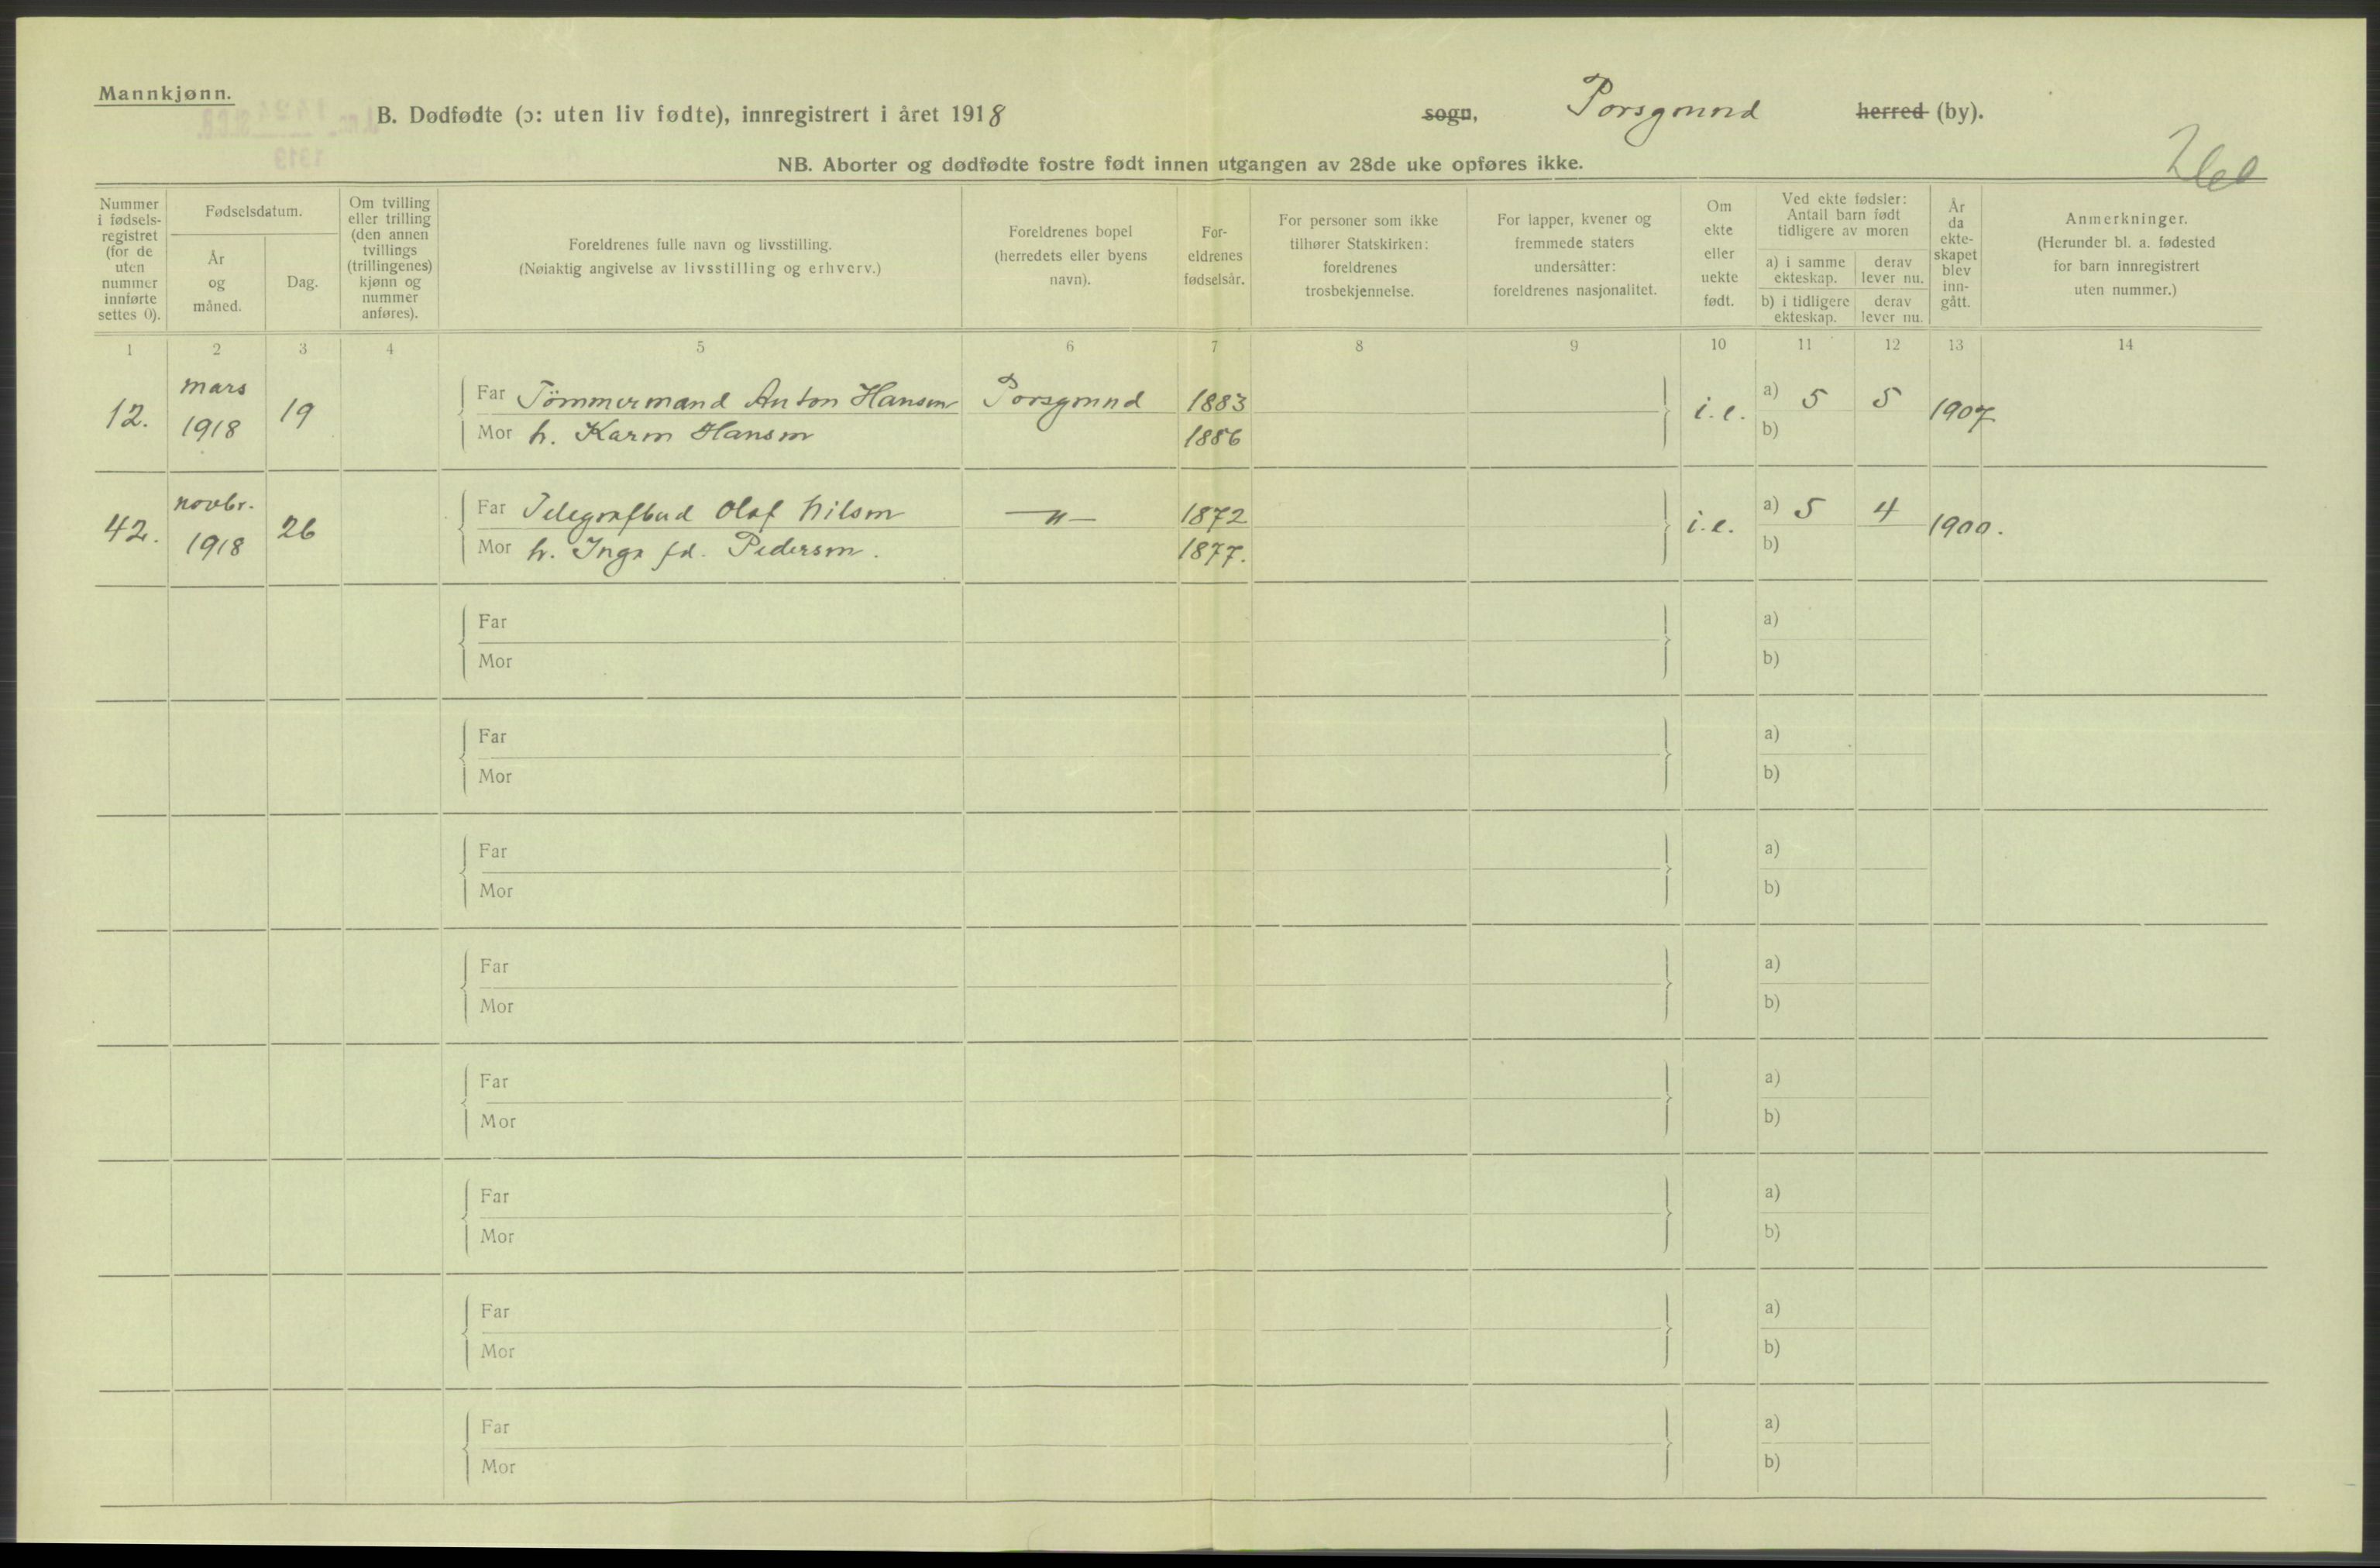 Mannkjønn.
B. Dødfødte (ɔ: uten liv fødte), innregistrert i året 1918 sogn, Porsgrund herred (by).
NB. Aborter og dødfødte fostre født innen utgangen av 28de uke opføres ikke.
Nummer i fødsels-registret (for de uten nummer innførte settes 0).
Fødselsdatum.
År og måned.
Dag.
Om tvilling eller trilling (den annen tvillings (trillingenes) kjønn og nummer anføres).
Foreldrenes fulle navn og livsstilling.
(Nøiaktig angivelse av livsstilling og erhverv.)
Foreldrenes bopel (herredets eller byens navn).
For-eldrenes fødselsår.
For personer som ikke tilhører Statskirken: foreldrenes trosbekjennelse.
For lapper, kvener og fremmede staters undersåtter: foreldrenes nasjonalitet.
Om ekte eller uekte født.
Ved ekte fødsler: Antall barn født tidligere av moren
a) i samme ekteskap. derav lever nu.
b) i tidligere ekteskap. derav lever nu.
År da ekte-skapet blev inn-gått.
Anmerkninger.
(Herunder bl. a. fødested for barn innregistrert uten nummer.)
1 2 3 4 5 6 7 8 9 10 11 12 13 14
12. mars 1918 19 Far Tömmermand Anton Hansen Porsgrund 1883 i.e. a) 5 5 1907
Mor h. Karen Hansen 1886 b)
42. novbr. 1918 26 Far Telegrafbud Olaf Nilsen —"— 1872 i.e. a) 5 4 1900.
Mor h. Inga fd. Pedersen. 1877. b)
Far a)
Mor b)
Far a)
Mor b)
Far a)
Mor b)
Far a)
Mor b)
Far a)
Mor b)
Far a)
Mor b)
Far a)
Mor b)
Far a)
Mor b)